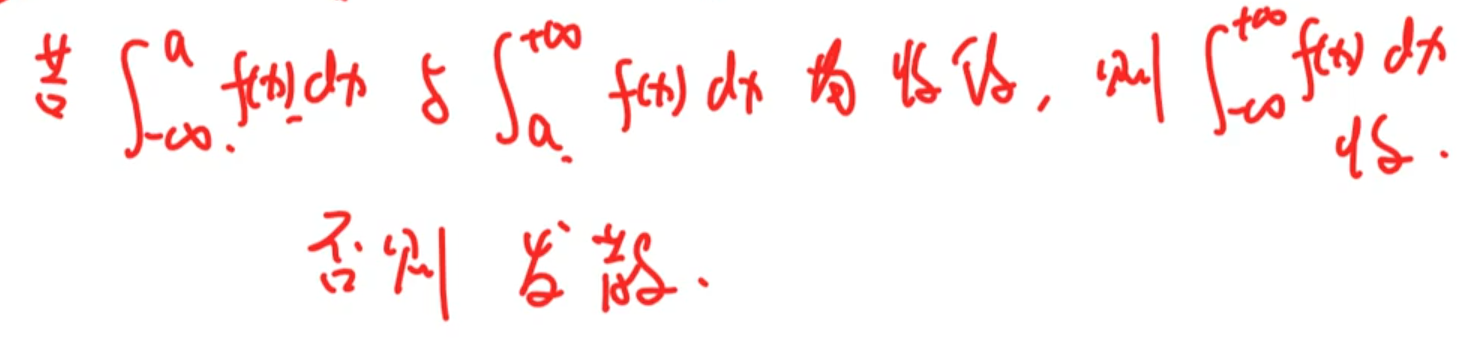 若 ∫_{-∞}^{a} f(x) dx 与 ∫_{a}^{+∞} f(x) dx 均收敛, 则 ∫_{-∞}^{+∞} f(x) dx
收.
否则 发散.